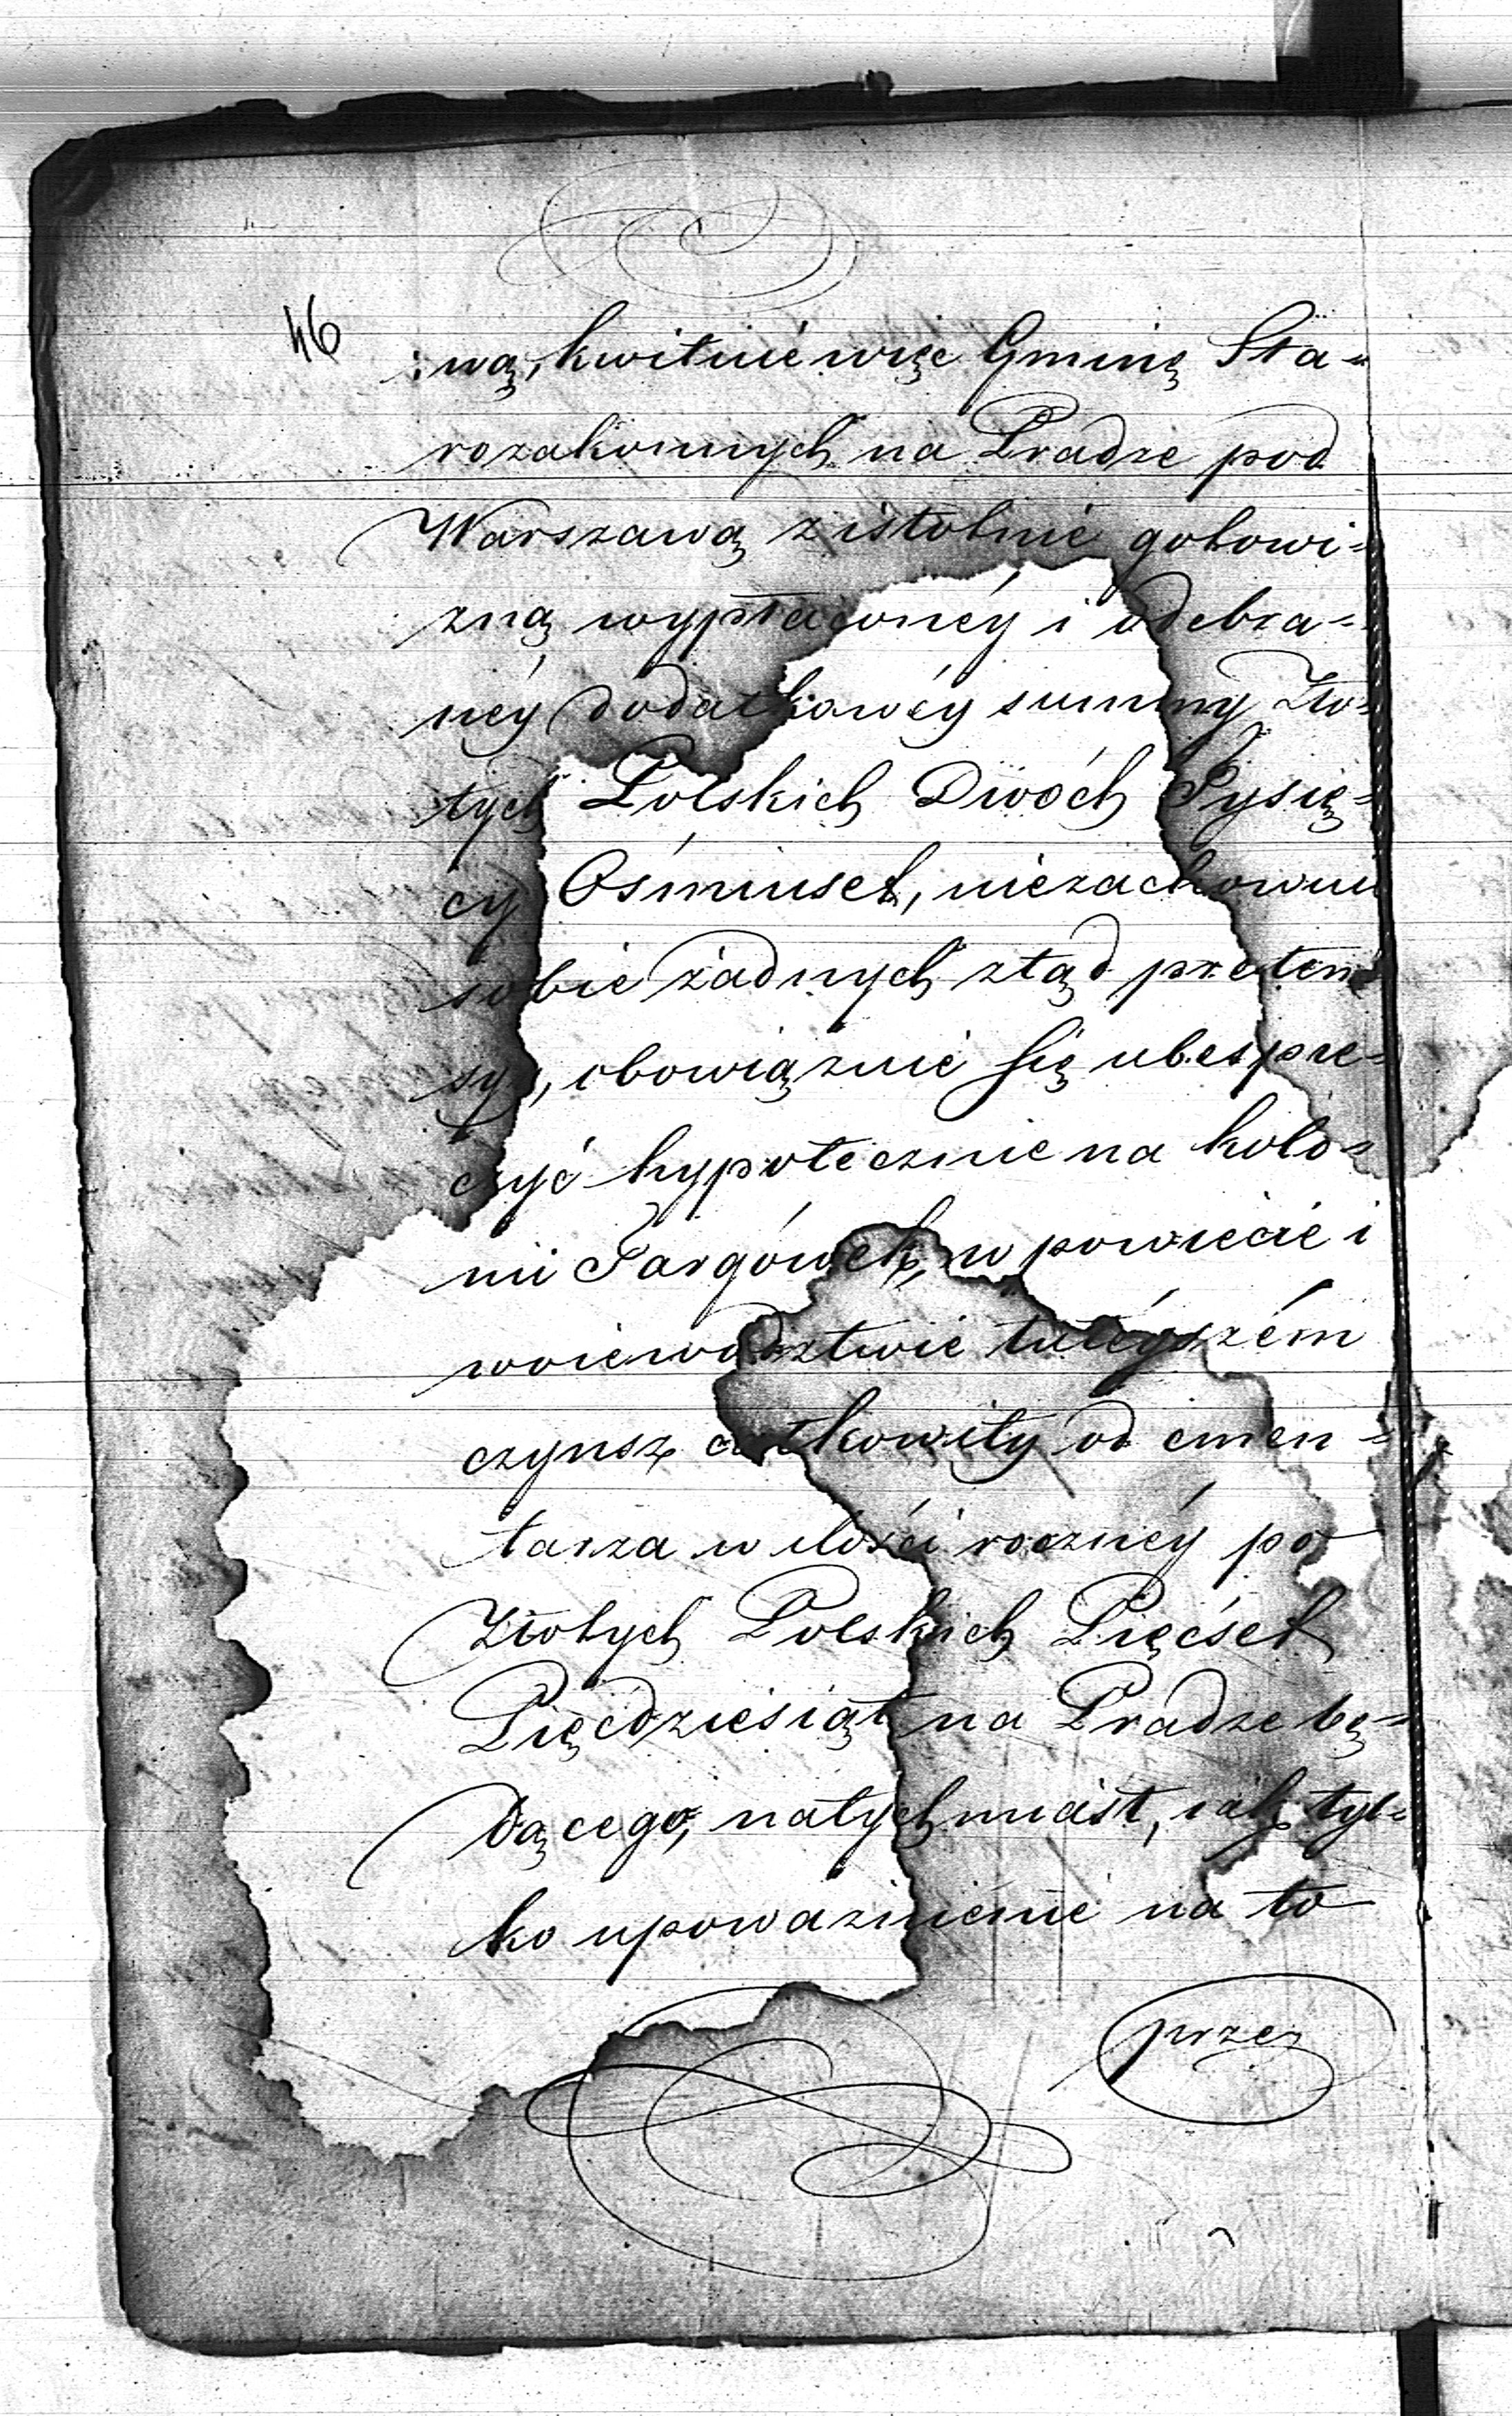 46
:wą, kwituie więc Gminę Sta=
rozakonnych na Pradze pod
Warszawą z istotnie gotowi=
zną wypłaconéy i odebra=
néy dodatkowéy summy Zło=
tych Polskich Dwóch Tysię=
cy Ośmiuset, niezachowuie
sobie żadnych ztąd preten=
syi, obowiązuie się ubespie=
czyć hypotecznie na kolo=
nii Targówek, w powiecie i
woiewództwie tuteyszém
czynsz całkowity od cmen=
tarza w ilości roczney po
Złotych Polskich Pięćset
Pięćdziesiąt na Pradze bę=
dącego, natychmiast, iak tyl=
ko upoważnienie na to
przez